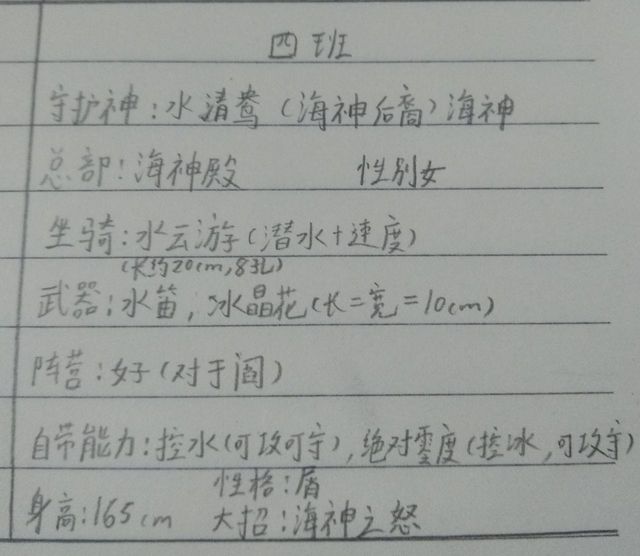 四班
守护神：水清鸯（海神后裔）海神
总部：海神殿 性别女
坐骑：水云游（潜水+速度）
（长约20cm，8孔）
武器：水笛，冰晶花（长=宽=10cm）
阵营：好（对于阎）
自带能力：控水（可攻可守），绝对零度（控冰，可攻守）
性格：屑
身高：165cm 大招：海神之怒